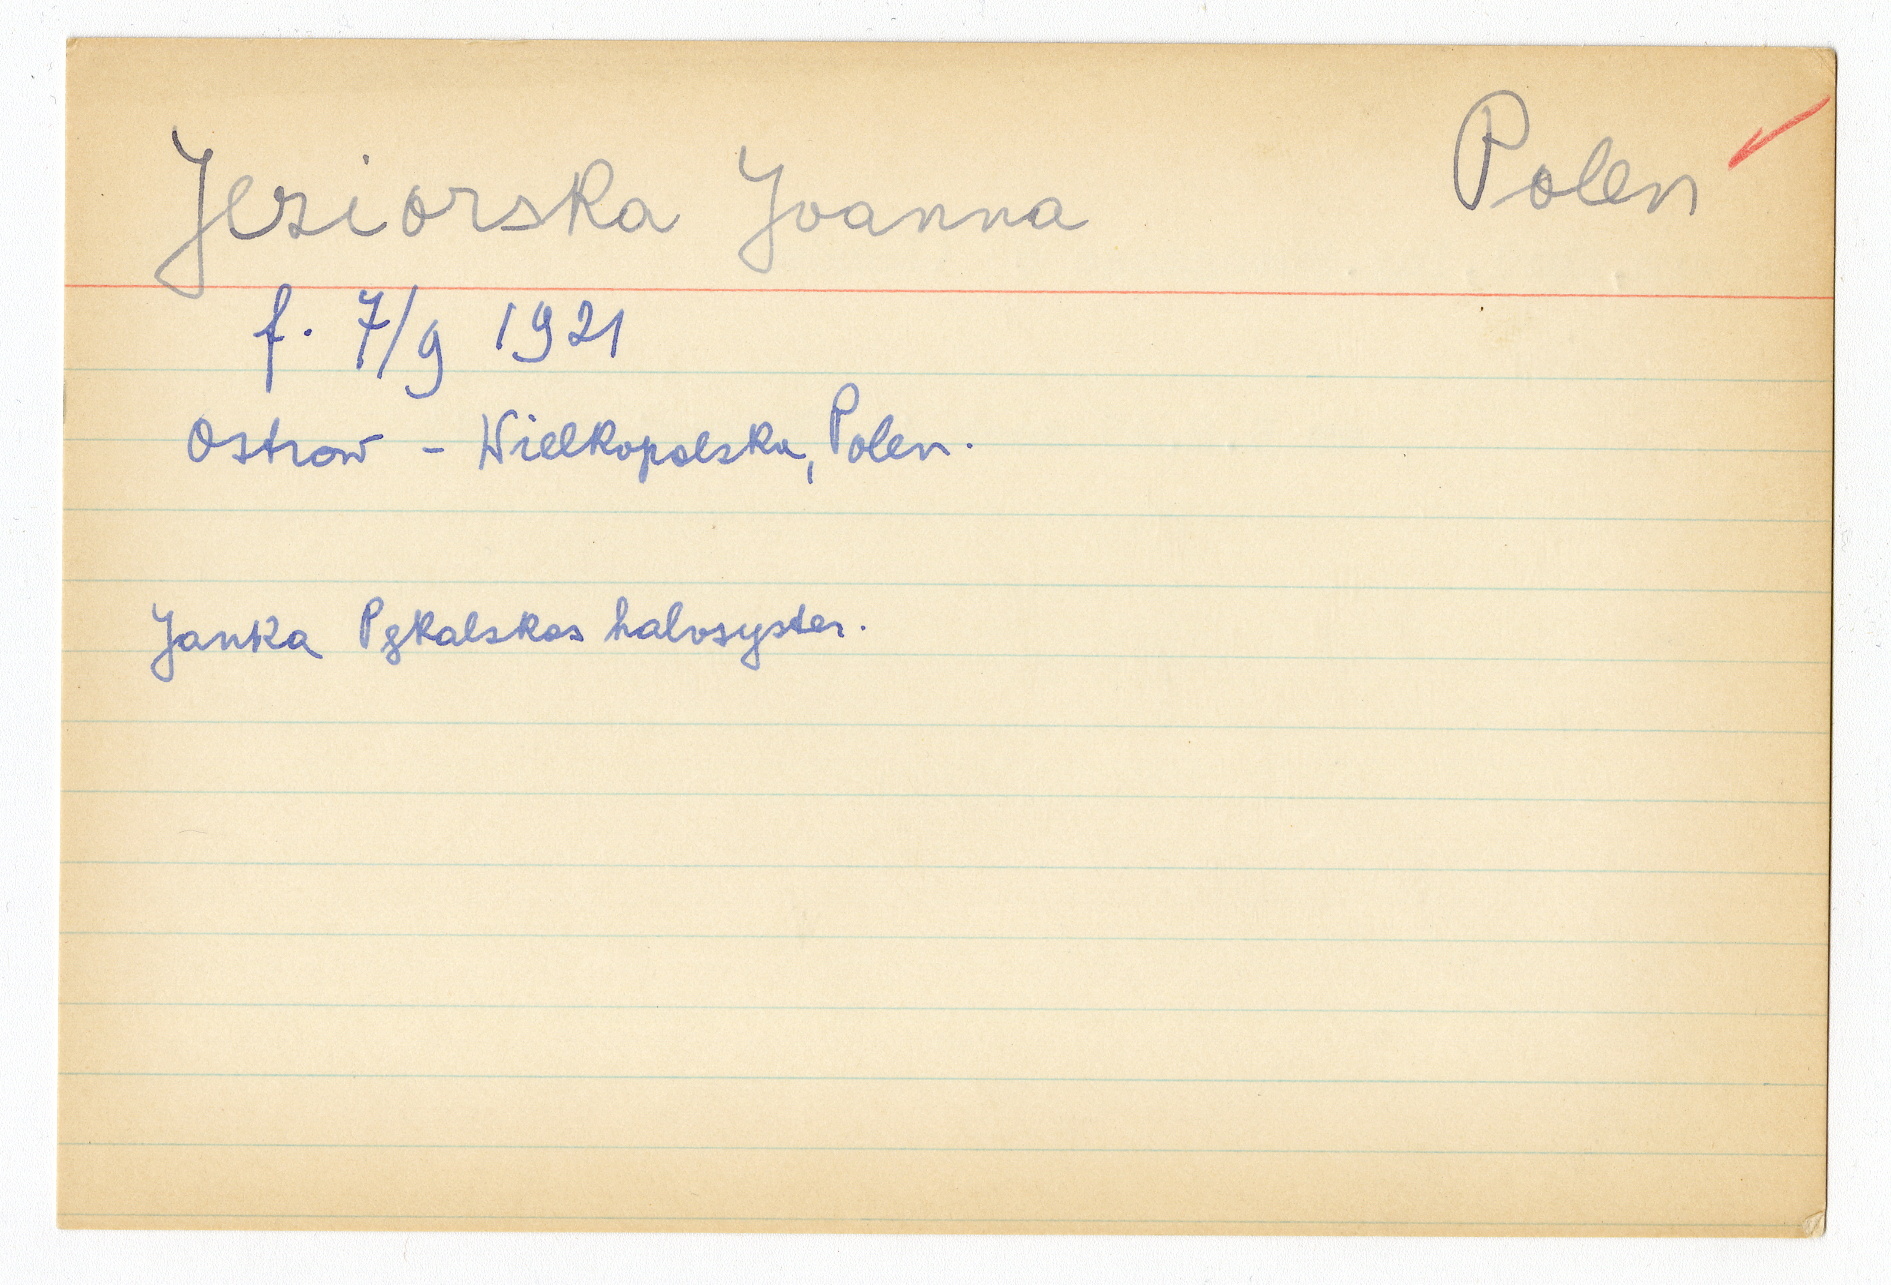 Jeziorska Joanna Polen
f. 7/9 1921
Ostrow - Wielkopolska, Polen.
Janka Pykalskas halvsyster.